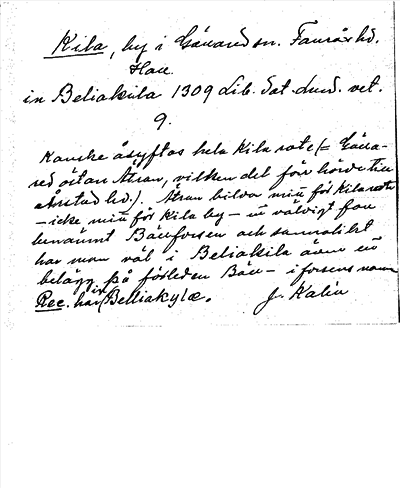 Kila, by i Gällared sn. Faurås hd.
Hall.
in Beliakila 1309 Lib. dat. Lund. vet.
9.
Kanske åsyftas hela Kila rote (= Gälla-
red östan Ätran, vilken del förr hörde till
Årstad hd.) Ätran bildar mitt för Kila rote
– icke mitt för Kila by – ett väldigt fall
benämnt Bällforsen och sannolikt
har man väl i Beliakila även ett
belägg på förleden Bäll- i forsens namn
Rec. har in Belliakylæ. J. Kalén